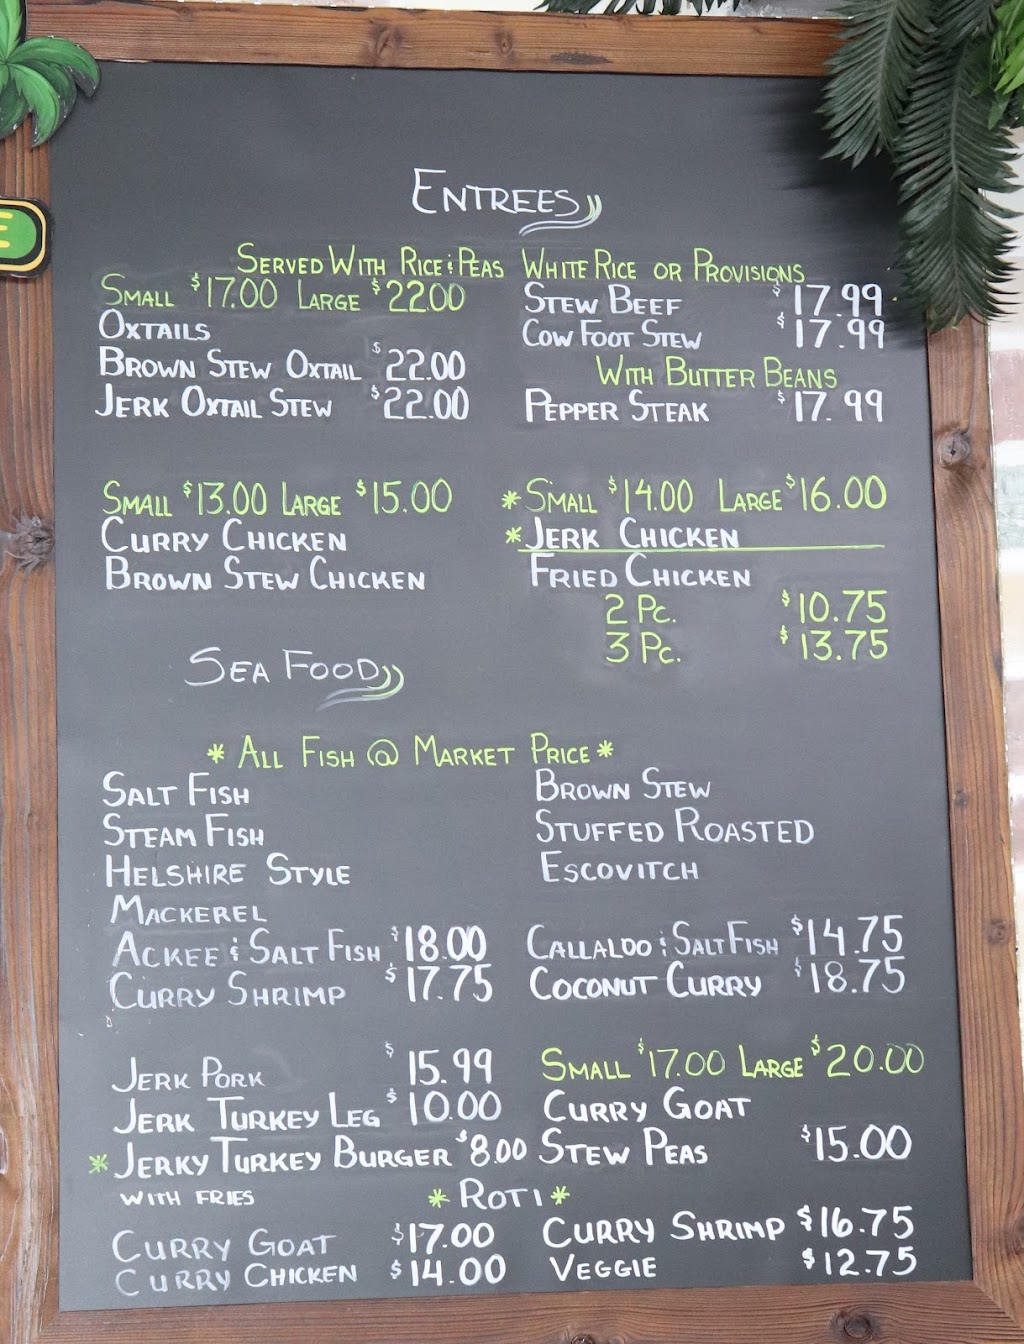 E
ENTREES
SERVED WITH RICE & PEAS WHITE RICE OR PROVISIONS
SMALL $17.00 LARGE $22.00
OXTAILS
BROWN STEW OXTAIL $22.00
JERK OXTAIL STEW $22.00
STEW BEEF $17.99
COW FOOT STEW $17.99
WITH BUTTER BEANS
PEPPER STEAK $17.99
SMALL $13.00 LARGE $15.00
CURRY CHICKEN
BROWN STEW CHICKEN
* SMALL $14.00 LARGE $16.00
* JERK CHICKEN
FRIED CHICKEN
2 PC. $10.75
3 PC. $13.75
SEA FOOD
* ALL FISH @ MARKET PRICE *
SALT FISH
STEAM FISH
HELSHIRE STYLE
MACKEREL
ACKEE & SALT FISH $18.00
CURRY SHRIMP $17.75
BROWN STEW
STUFFED ROASTED
ESCOVITCH
CALLALOO & SALT FISH $14.75
COCONUT CURRY $18.75
JERK PORK $15.99
JERK TURKEY LEG $10.00
* JERKY TURKEY BURGER $8.00
WITH FRIES
SMALL $17.00 LARGE $20.00
CURRY GOAT
STEW PEAS $15.00
* ROTI *
CURRY GOAT $17.00
CURRY CHICKEN $14.00
CURRY SHRIMP $16.75
VEGGIE $12.75